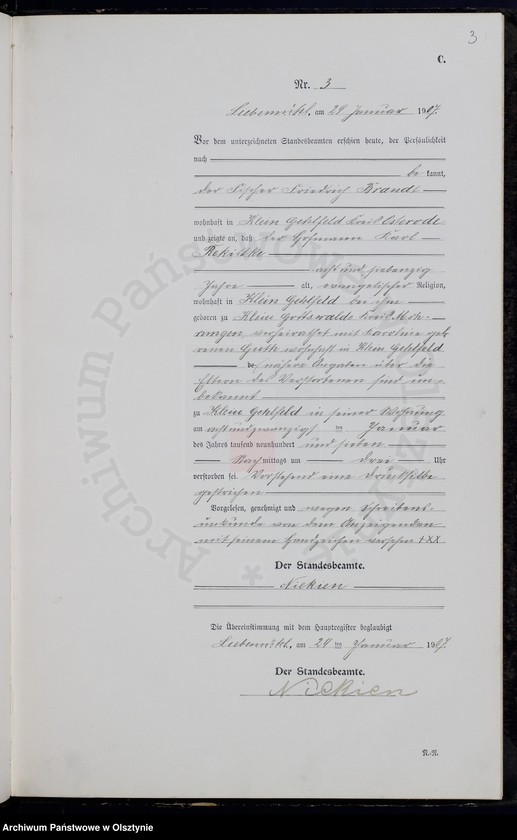 3
C.
Nr. 3
Liebemühl, am 29 Januar 1907.
Vor dem unterzeichneten Standesbeamten erschien heute, der Persönlichkeit
nach
be kannt,
der Fischer Friedrich Brandt
wohnhaft in Klein Gehlfeld Kreis Osterode
und zeigte an, daß der Hofmann Karl
Rekittke
acht und siebenzig
Jahre alt, evangelischer Religion,
wohnhaft in Klein Gehlfeld bei ihm
geboren zu Klein Gottswalde Kreis Moh-
rungen, verheirathet mit Karoline geb
renen Guth wohnhaft in Klein Gehlfeld
des nähere Angaben über die
Eltern des Verstorbenen sind un-
bekannt
zu Klein Gehlfeld in seiner Wohnung
am achtundzwanzigsten Januar
des Jahres tausend neunhundert und sieben
Nachmittags um drei Uhr
verstorben sei. Vorstehend eine Drucksilbe
gestrichen
Vorgelesen, genehmigt und wegen Schreibens-
unkunde von dem Anzeigenden
mit seinem Handzeichen versehen +XX
Der Standesbeamte.
Nickien
Die Übereinstimmung mit dem Hauptregister beglaubigt
Liebemühl, am 29 ten Januar 1907.
Der Standesbeamte.
Nickien
N.-N.
Archiwum Państwowe w Olsztynie
Archiwum Państwowe w Olsztynie